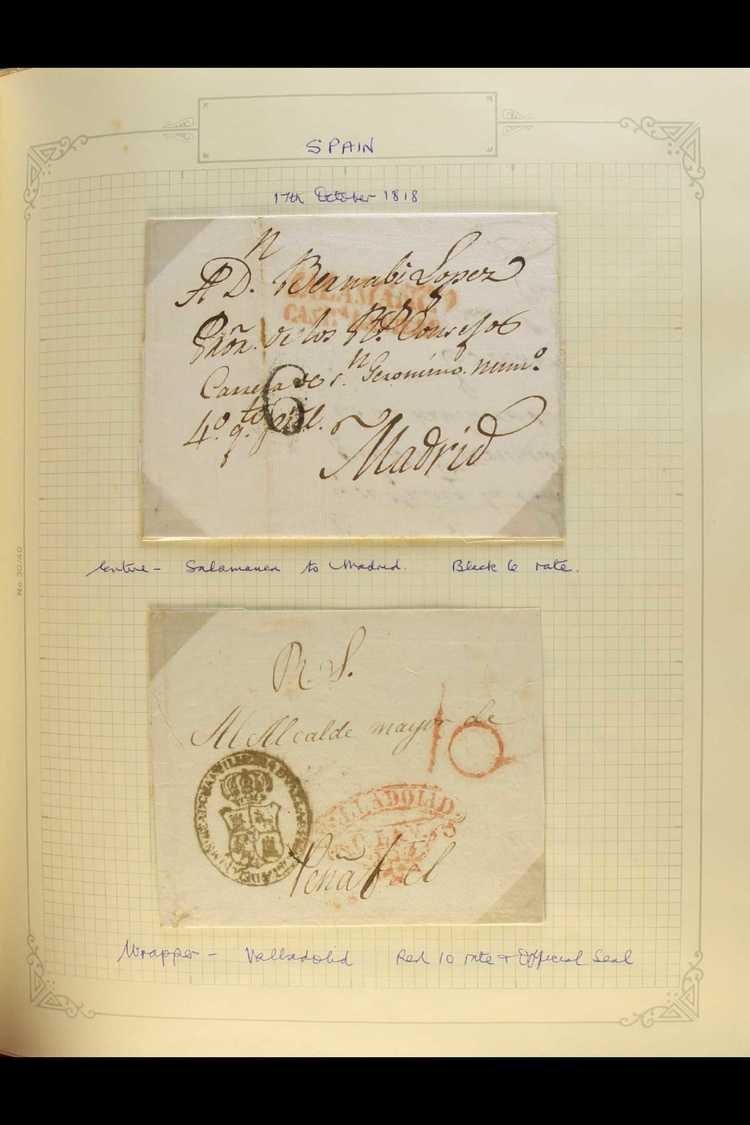 SPAIN
17th October 1818
A Dn. Bernabe Lopez
SALAMANCA
de los Rs. Consejos
Carrera de Sn. Geronimo. num.o
4.o
6
Madrid
Entire - Salamanca to Madrid. Black 6 rate.
No 30/40
R. S.
Al Alcalde mayor de
10
VALLADOLID
Peñafiel
Wrapper - Valladolid Red 10 rate + Official Seal